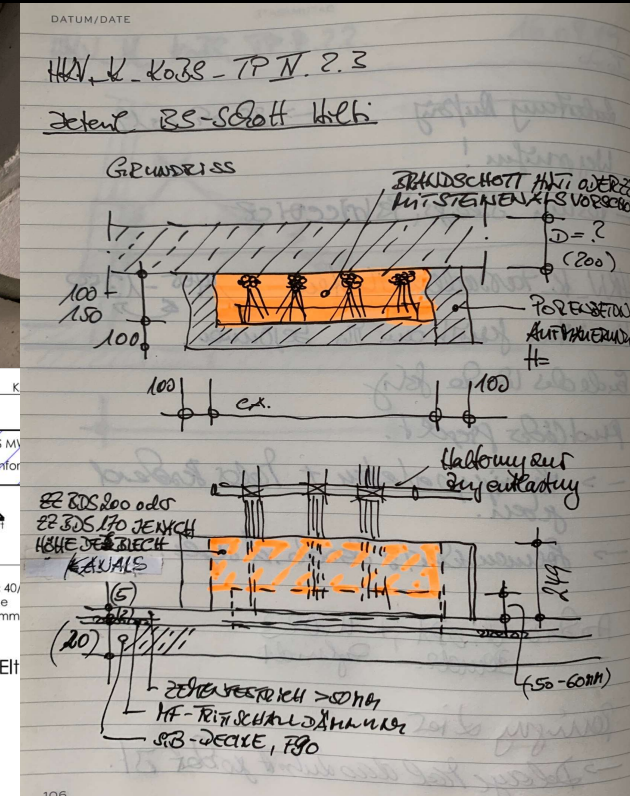 DATUM/DATE
HKV. K_KOBS_TP IV. 2.3
Detail BS-Schott Hilti
GRUNDRISS
BRANDSCHOTT HILTI ODER ZZ
MIT STEINEN ALS VORSCHO
D=?
(200)
100
150
100
PORENBETON
AUFMAUERUNG
H=
100
100
Halterung zur
Zugentlastung
ZZ BDS 200 oder
ZZ BDS 170 JE NACH
HÖHE DES BLECH
KANALS
249
(5)
(20)
(50-60mm)
ZEMENTESTRICH >50mm
MF-TRITTSCHALLDÄMMUNG
STB-DECKE, F90
106
K
S MV
nfor
40/
e
mm
Elt